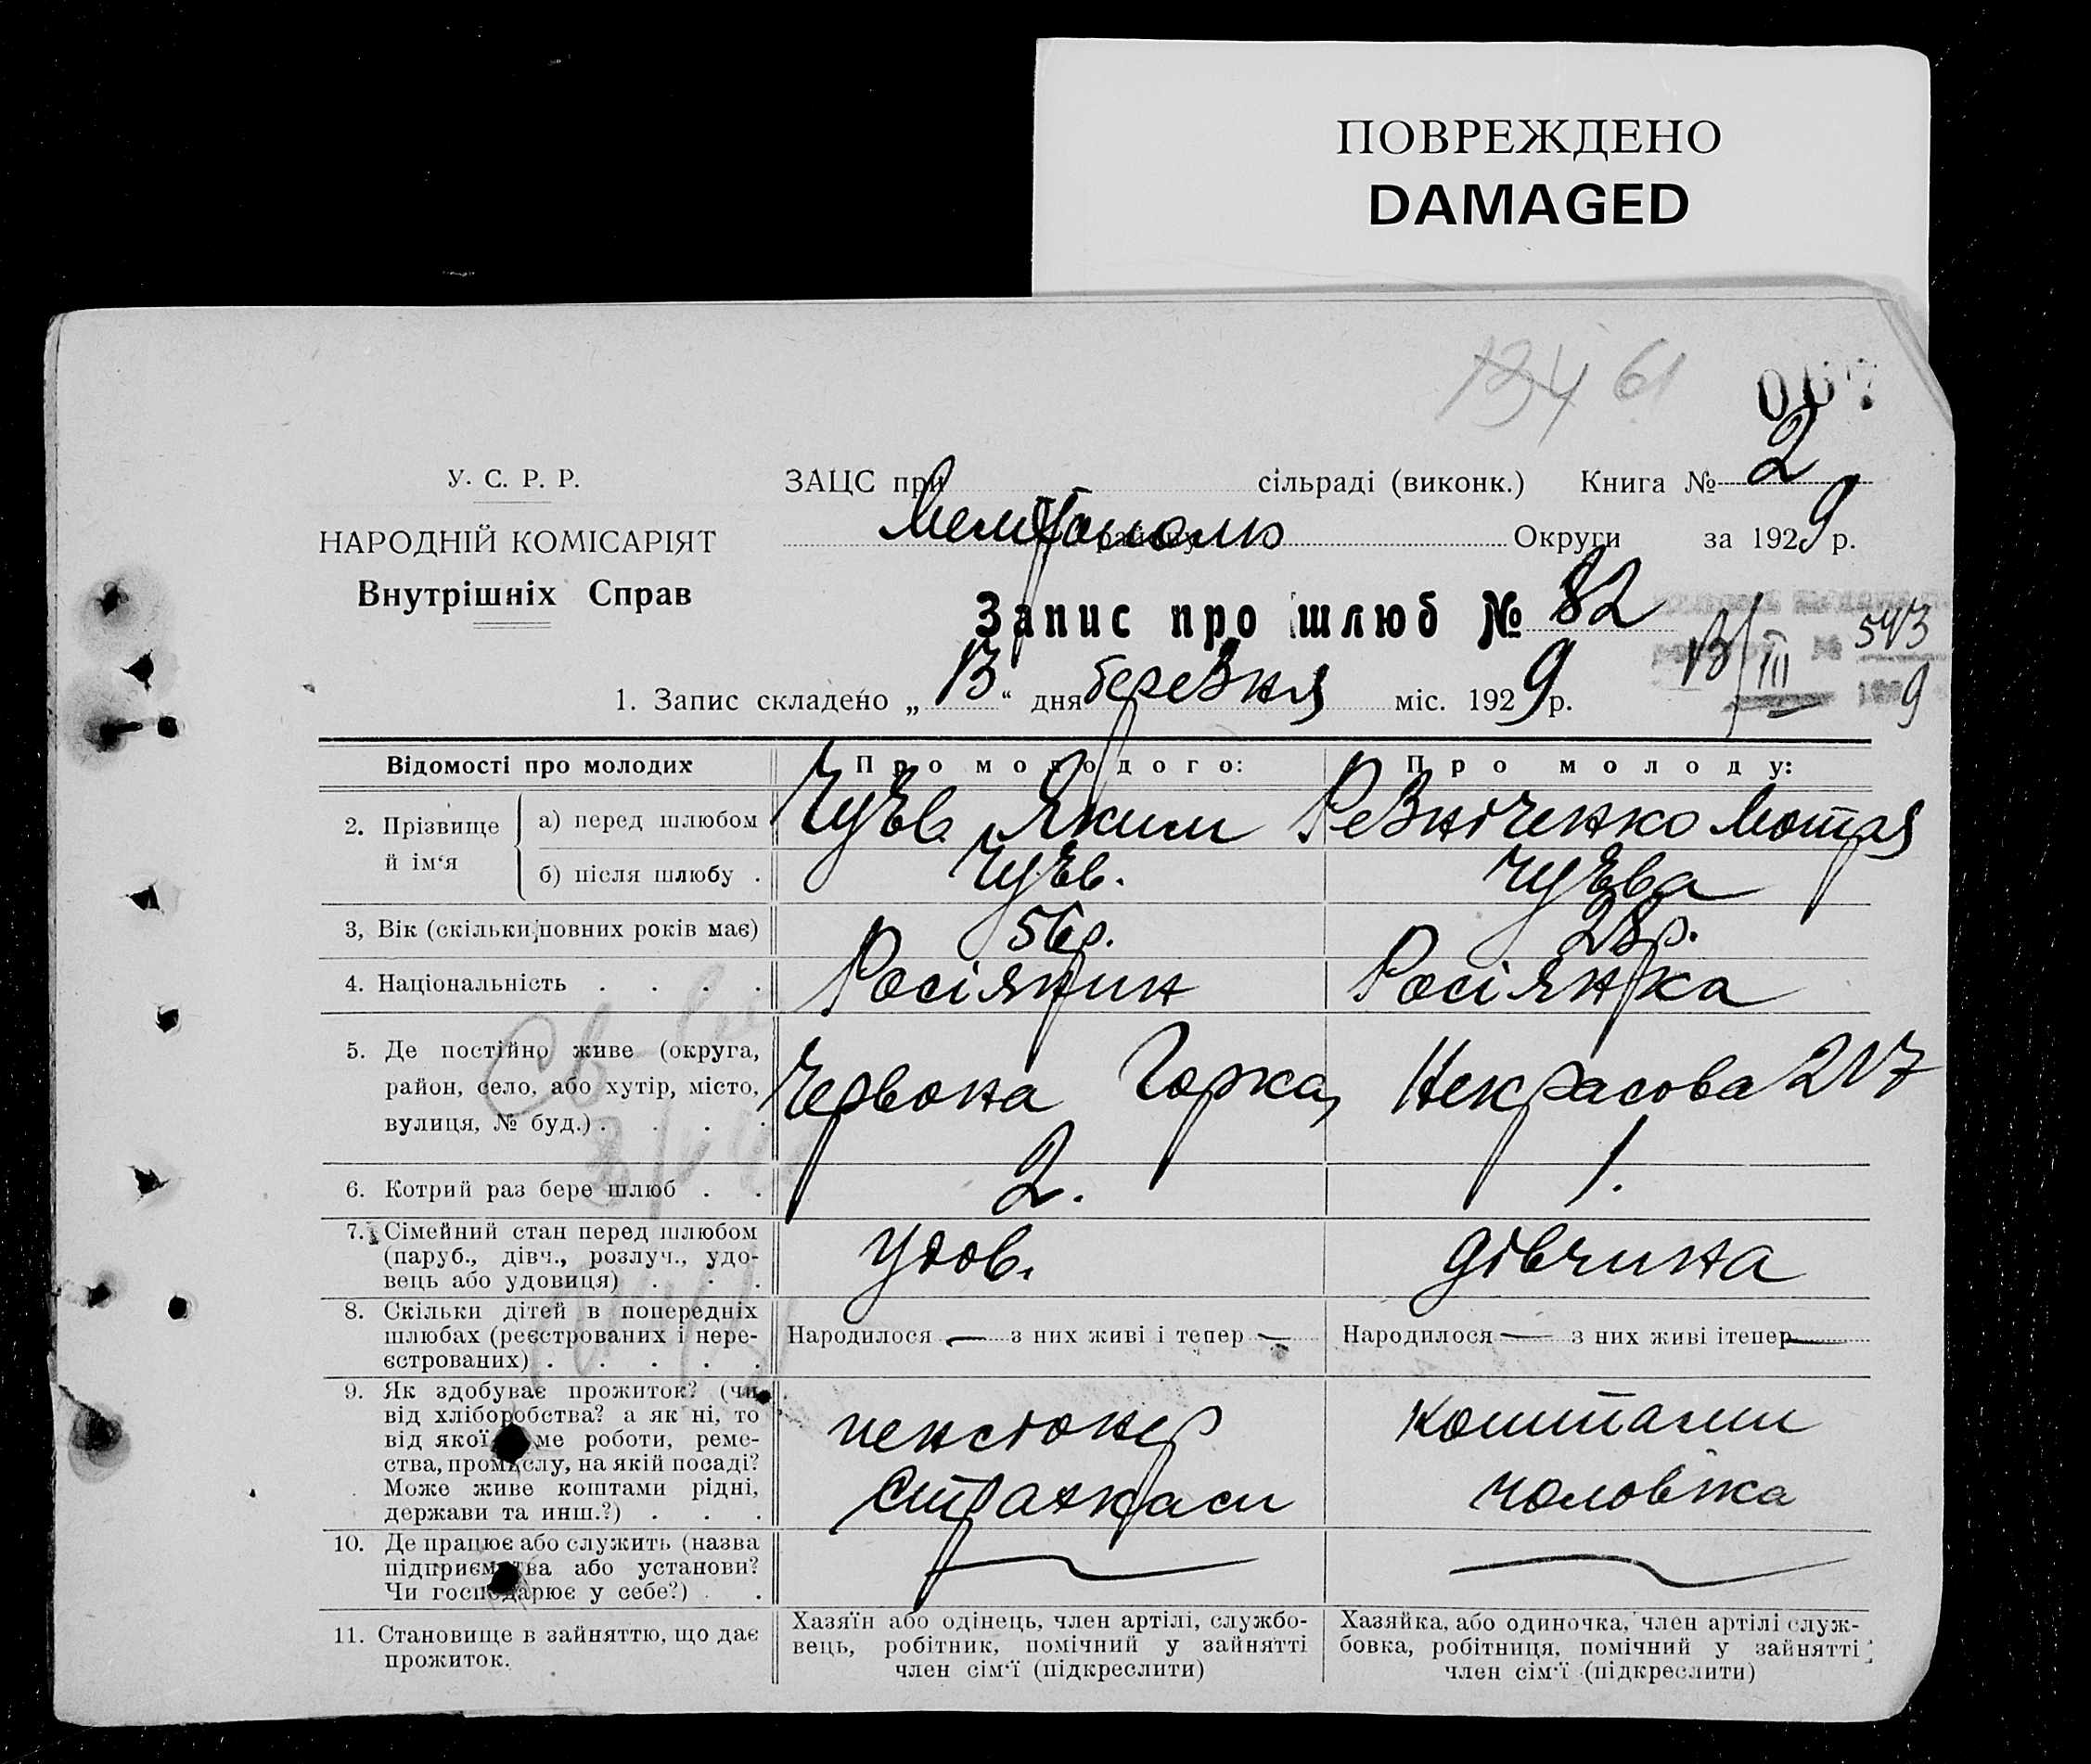 ПОВРЕЖДЕНО
DAMAGED
134 61
У. С. Р. Р.
НАРОДНІЙ КОМІСАРІЯТ
Внутрішніх Справ
ЗАЦС при сільраді (виконк.) Книга № 2
Мелітополь району Округи за 1929 р.
Запис про шлюб № 82
13/III 543
9
1. Запис складено „13“ дня березня міс. 1929 р.
Відомості про молодих Про молодого: Про молоду:
2. Прізвище й ім‘я
а) перед шлюбом Чуєв Яким Резніченко Мотря
б) після шлюбу . Чуєв. Чуєва
3, Вік (скільки повних років має) 56 р. 28 р.
4. Національність . . . . Росіянин Росіянка
5. Де постійно живе (округа,
район, село, або хутір, місто, Червона Горка, Некрасова 217
вулиця, № буд.) . . . .
6. Котрий раз бере шлюб . . 2. 1.
7. Сімейний стан перед шлюбом
(паруб., дівч., розлуч., удо- Удов. дівчина
вець або удовиця) . . .
8. Скільки дітей в попередніх
шлюбах (реєстрованих і нере- Народилося — з них живі і тепер — Народилося — з них живі ітепер —
єстрованих) . . . . .
9. Як здобуває прожиток? (чи
від хліборобства? а як ні, то пенсіонер коштами
від якої ме роботи, реме-
ства, промислу, на якій посаді?
Може живе коштами рідні, Страхкаси чоловіка
держави та инш.?) . . .
10. Де працює або служить (назва
підприємства або установи? — —
Чи господарює у себе?) . .
11. Становище в зайняттю, що дає
прожиток.
Хазяїн або одінець, член артілі, службо-
вець, робітник, помічний у зайнятті
член сім‘ї (підкреслити)
Хазяйка, або одиночка, член артілі служ-
бовка, робітниця, помічний у зайнятті
член сім‘ї (підкреслити)